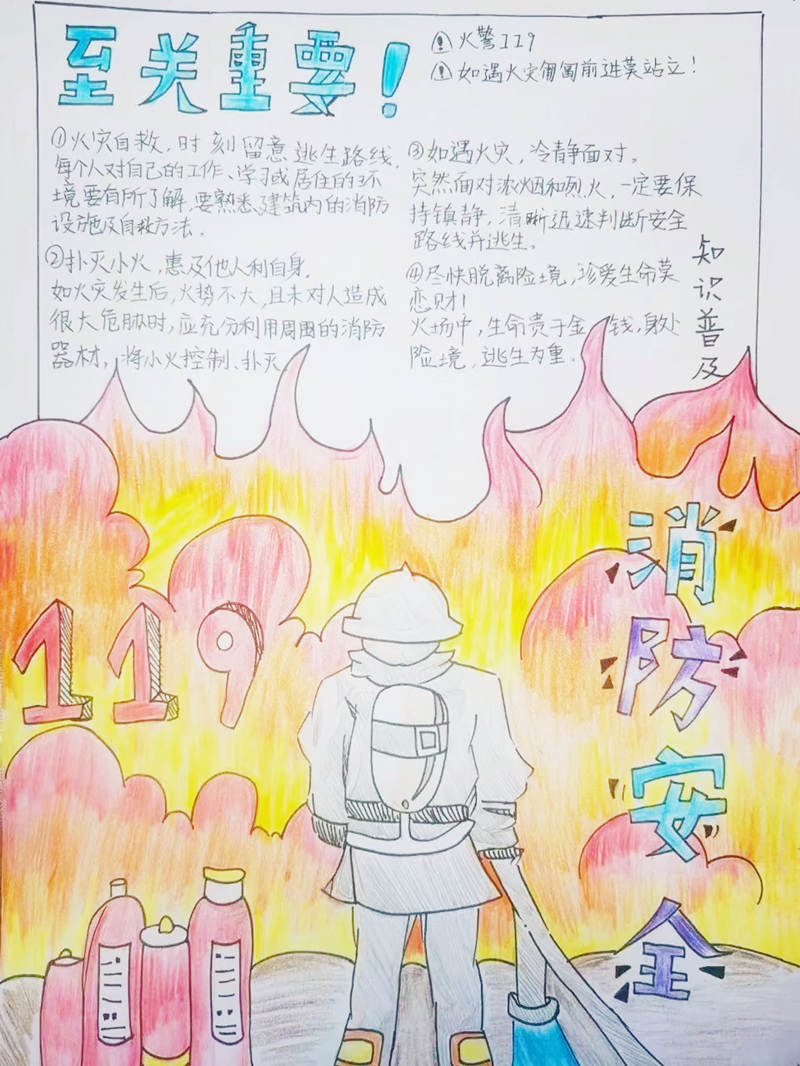 至关重要！
火警119
如遇火灾匍匐前进莫站立！
①火灾自救，时刻留意逃生路线.
每个人对自己的工作、学习或居住的环
境要有所了解，要熟悉建筑内的消防
设施及自救方法.
②扑灭小火，惠及他人利自身.
如火灾发生后，火势不大，且未对人造成
很大危胁时，应充分利用周围的消防
器材，将小火控制、扑灭.
③如遇火灾，冷静面对。
突然面对浓烟和烈火，一定要保
持镇静，清晰迅速判断安全
路线并逃生。
④尽快脱离险境，珍爱生命莫
恋财！
火场中，生命贵于金钱，身处
险境，逃生为重.
知识普及
119
消防安全